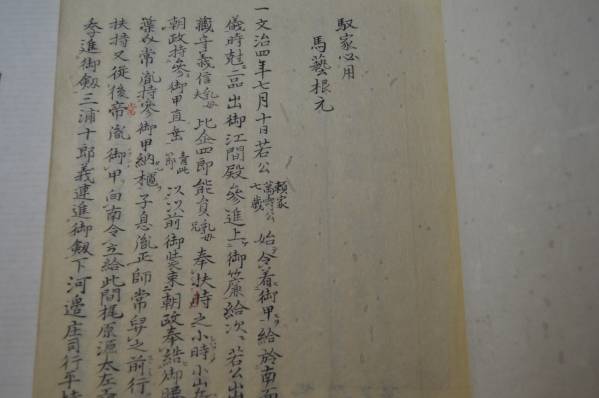 馭家必用
馬藝根元
一文治四年七月十日若公頼家萬寿公七歳始令着御甲給於南面
儀時尅二品出御江間殿參進上御簾給次、若公出
藏守義信乳母夫比企四郎能員乳母兄奉扶持之小時小山兵
朝政持參御甲直垂青此以以前御装束朝政奉結御腰
葉次常胤持參御甲納櫃子息胤正師常舁之前行
扶持又従後常胤御甲向南令立給此間梶原源太左
參進御劔三浦十郎義連進御劔下河邊庄司行平持